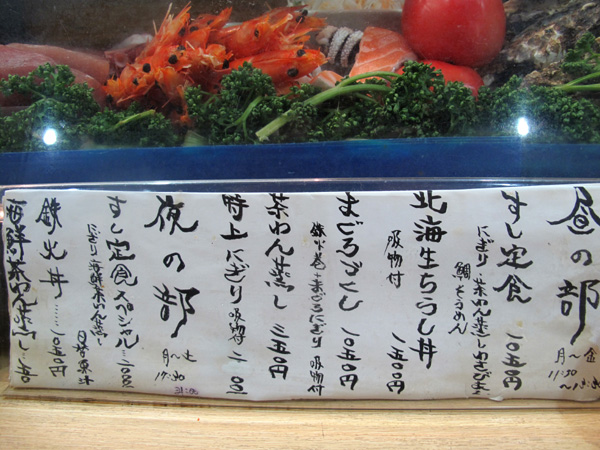 昼の部
月〜金
11:30
すし定食 一〇五〇円
にぎり・茶わん蒸し
鯛そうめん
北海生ちらし丼
吸物付 一、五〇〇円
まぐろづくし 一〇五〇円
鉄火巻・まぐろにぎり 吸物付
茶わん蒸し 三五〇円
特上にぎり 吸物付
夜の部
月〜土
17:30
21:00
すし定食スペシャル
にぎり・海鮮茶わん蒸し
鉄火丼……一〇五〇円
海鮮茶わん蒸し